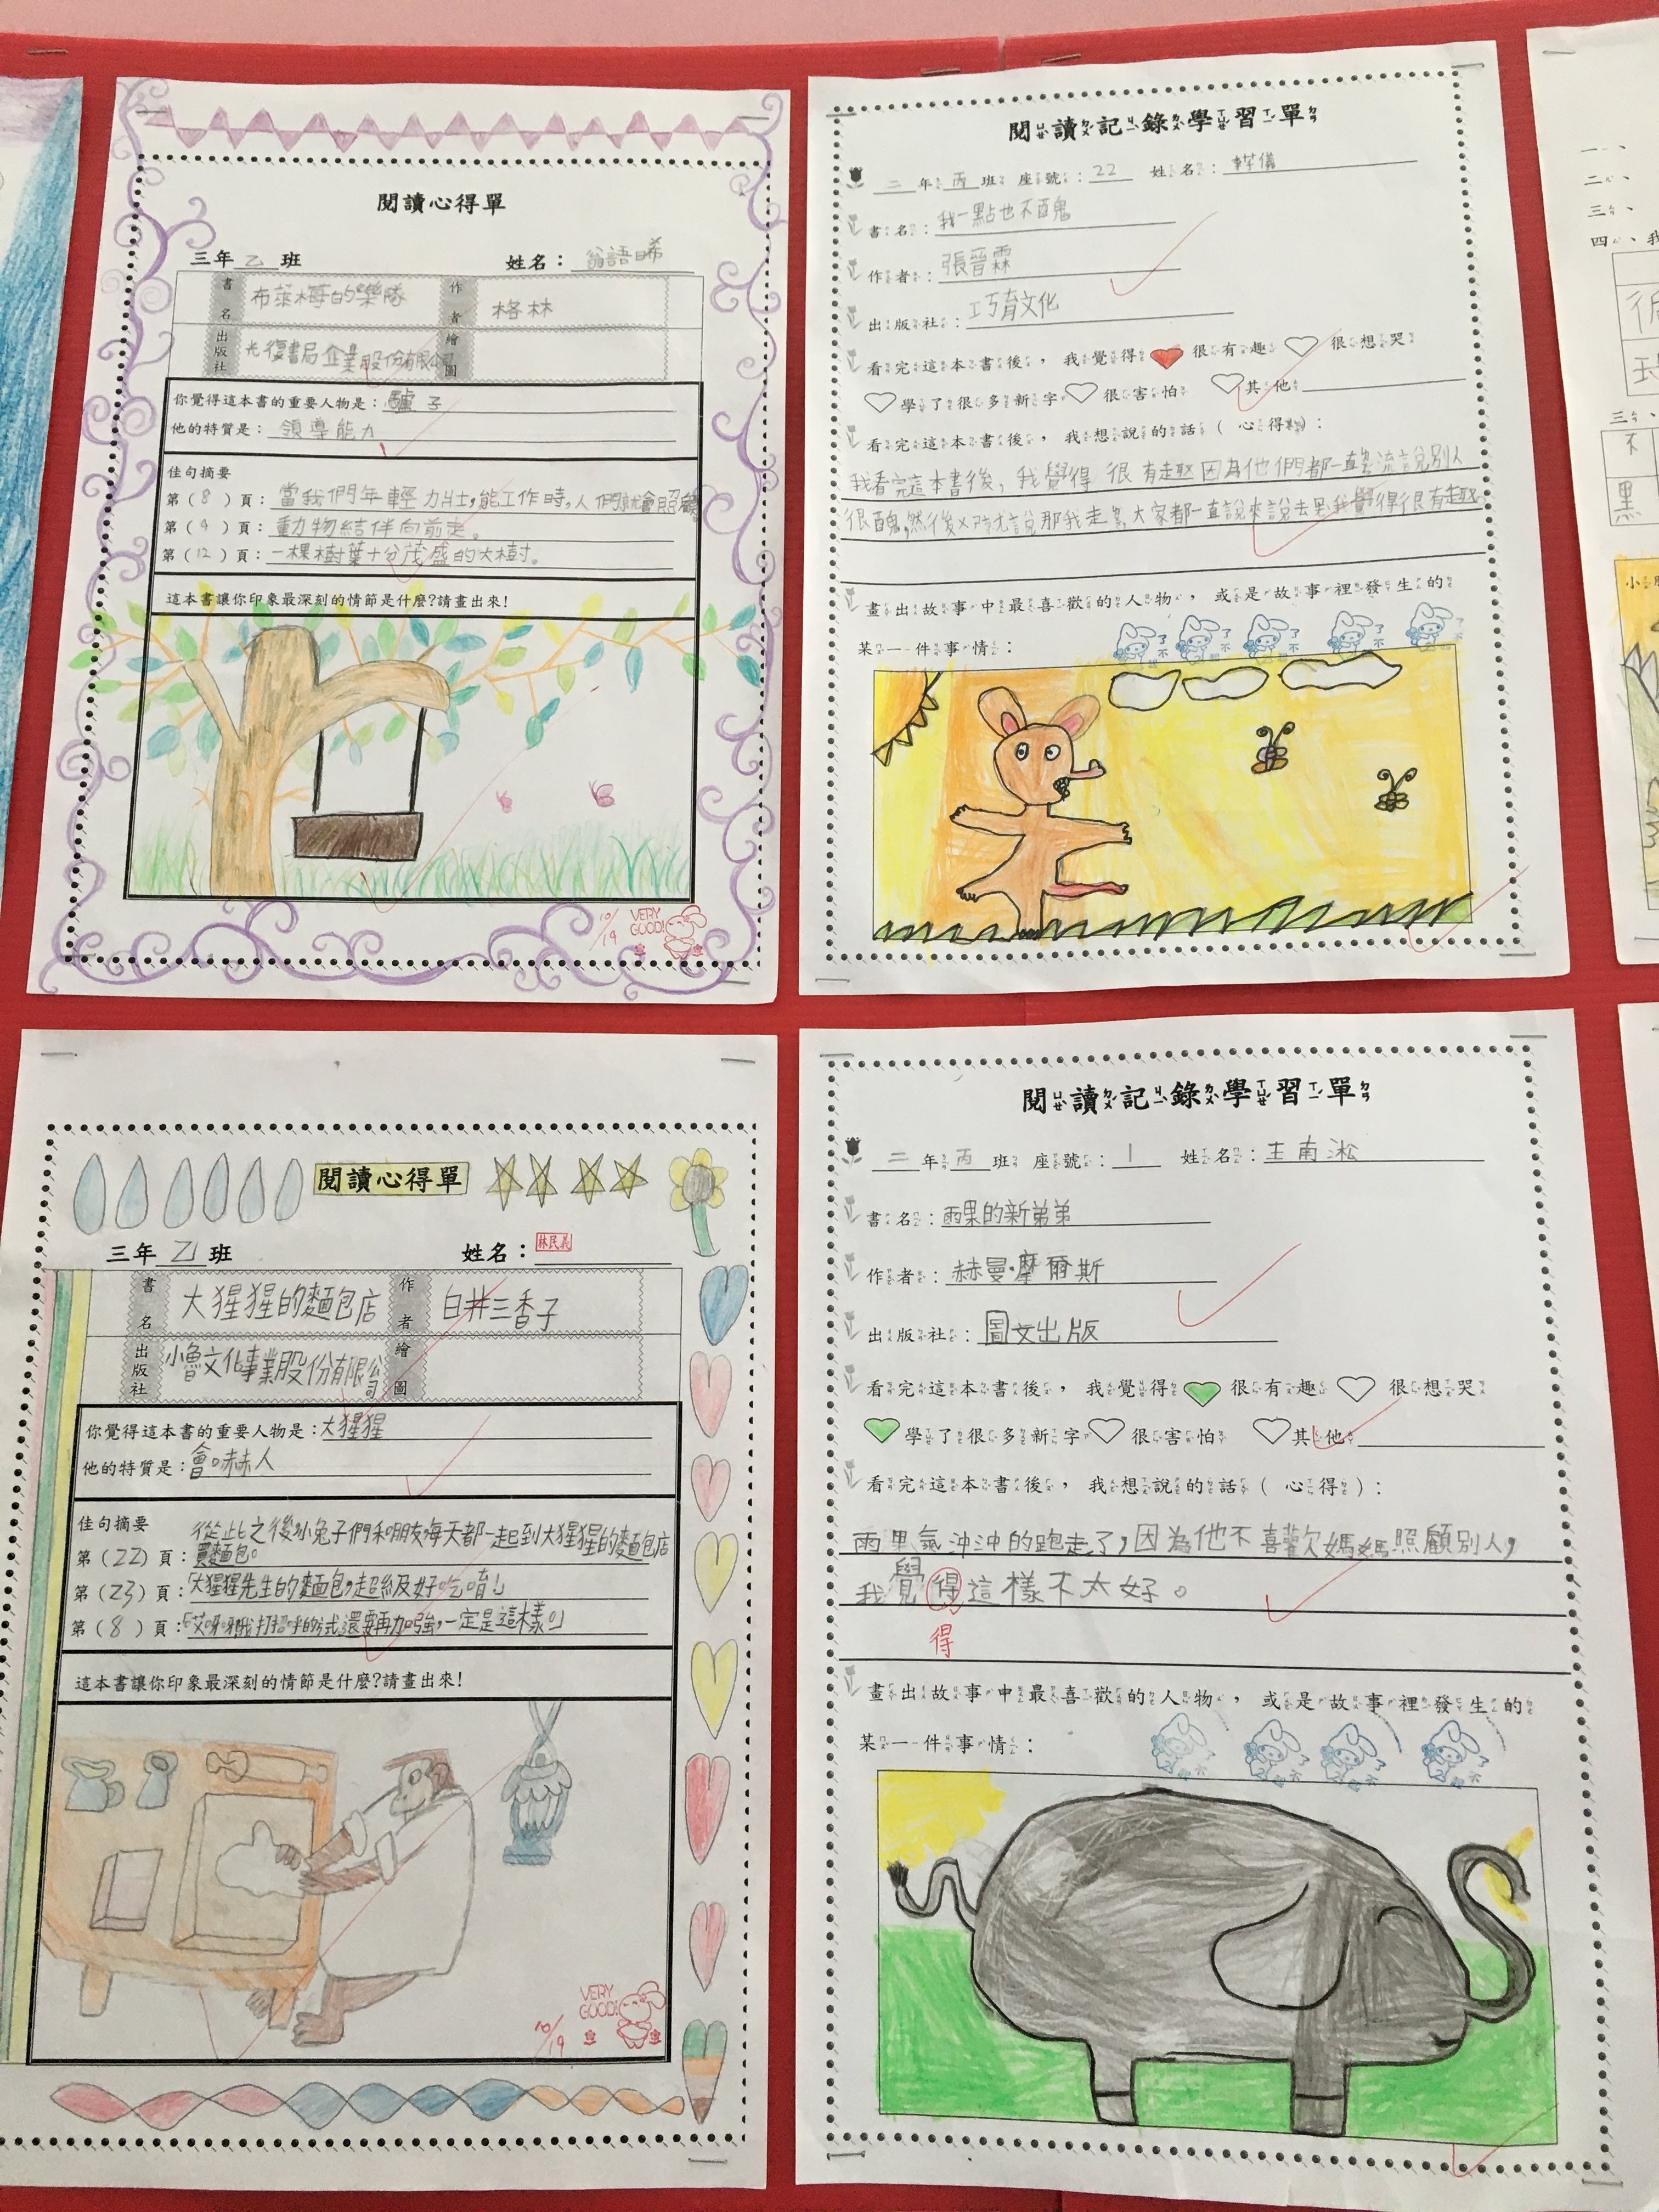 閱讀心得單
三年乙班 姓名：翁語晞
書名 布萊梅的樂隊 作者 格林
出版社 光復書局企業股份有限公司 繪圖
你覺得這本書的重要人物是：驢子
他的特質是：領導能力
佳句摘要
第（8）頁：當我們年輕力壯，能工作時，人們就會照顧
第（9）頁：動物結伴向前走。
第（12）頁：一棵樹葉十分茂盛的大樹。
這本書讓你印象最深刻的情節是什麼?請畫出來!
10/19
VERY GOOD!
閱讀記錄學習單
二年丙班 座號：22 姓名：
書名：我一點也不醜
作者：張晉霖
出版社：巧育文化
看完這本書後，我覺得 很有趣 很想哭
學了很多新字 很害怕 其他
看完這本書後，我想說的話（心得）：
我看完這本書後，我覺得 很有趣因為他們都一直輪流說別人
很醜，然後又 說那我走 大家都一直說來說去 我覺得很有趣
畫出故事中最喜歡的人物，或是故事裡發生的
某一件事情：
閱讀心得單
三年乙班 姓名：林民義
書名 大猩猩的麵包店 作者 白井三香子
出版社 小魯文化事業股份有限公司 繪圖
你覺得這本書的重要人物是：大猩猩
他的特質是：會嚇人
佳句摘要
從此之後，小兔子們和朋友每天都一起到大猩猩的麵包店
第（22）頁：買麵包。
第（23）頁：「大猩猩先生的麵包，超級好吃唷！」
第（8）頁：「艾呀呀我打招呼的方式還要再加強，一定是這樣。」
這本書讓你印象最深刻的情節是什麼?請畫出來!
VERY GOOD!
10/19
閱讀記錄學習單
二年丙班 座號：1 姓名：王南淞
書名：雨果的新弟弟
作者：赫曼·摩爾斯
出版社：圖文出版
看完這本書後，我覺得 很有趣 很想哭
學了很多新字 很害怕 其他
看完這本書後，我想說的話（心得）：
雨果氣沖沖的跑走了，因為他不喜歡媽媽照顧別人，
我覺得這樣不太好。
得
畫出故事中最喜歡的人物，或是故事裡發生的
某一件事情：